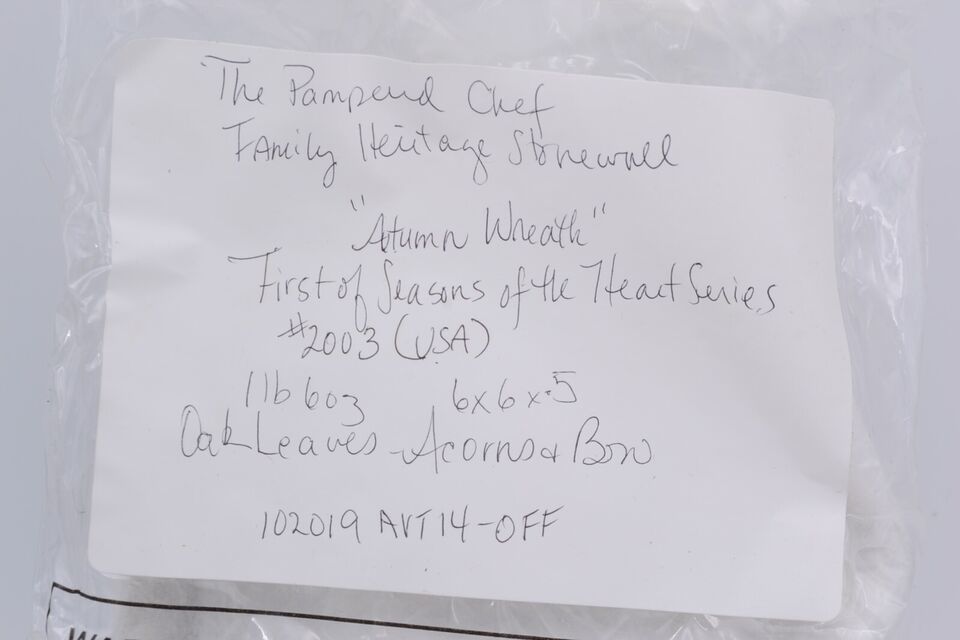 The Pampered Chef
Family Heritage Stoneware
"Autumn Wreath"
First of Seasons of the Heart Series
#2003 (USA)
1lb 6oz 6x6x.5
Oak Leaves - Acorns & Bow
102019 AVT14-OFF